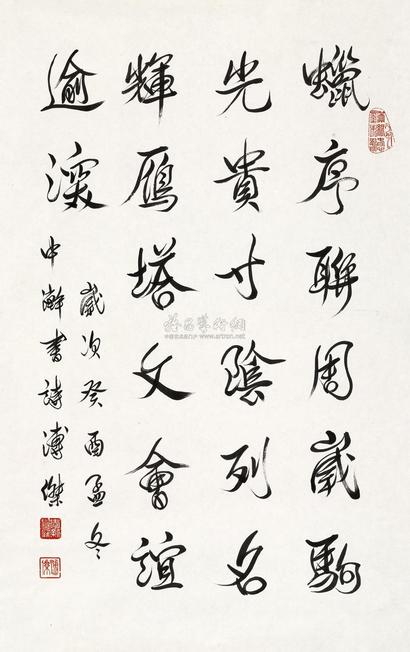 蠟序聯周歲駒
光貴寸陰列名
輝鴈塔文會誼
逾深
歲次癸酉孟冬
中澣書詩溥傑
雅昌藝術網